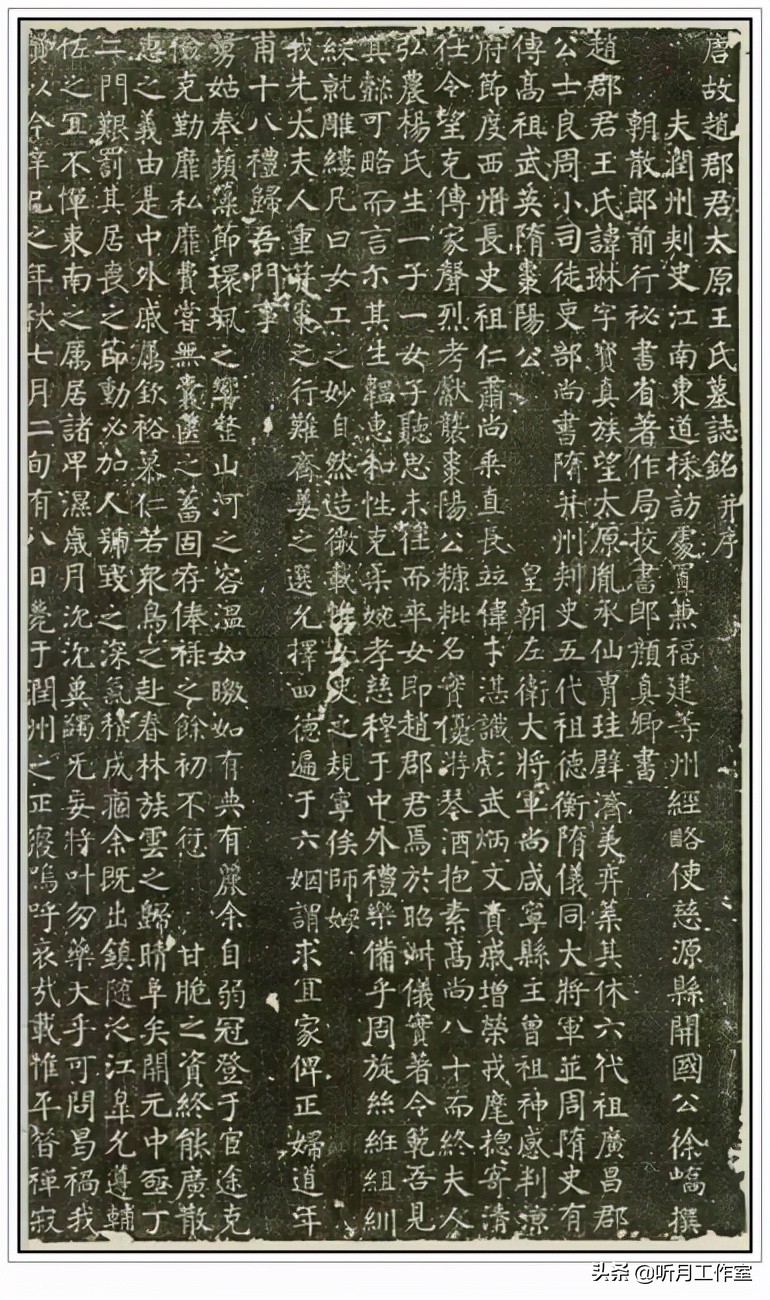 唐故趙郡君太原王氏墓誌銘 并序
夫潤州刾史江南東道採訪處置兼福建等州經略使慈源縣開國公徐嶠撰
朝散郎前行祕書省著作局挍書郎顏真卿書
趙郡君王氏諱琳字寶真族望太原胤承仙胄珪璧濟美弈葉其休六代祖廣昌郡
公士良周小司徒吏部尚書隋并州刾史五代祖德衡隋儀同大將軍並周隋史有
傳高祖武隋棗陽公 皇朝左衛大將軍尚咸寧縣主曾祖神感判涼
府節度西州長史祖仁肅尚乘直長並偉才湛識彪武炳文貴戚增榮戎麾揔寄清
任令望克傳家聲烈考獻襲棗陽公糠粃名實優游琴酒抱素高尚八十而終夫人
弘農楊氏生一子一女子聽思未仕而卒女即趙郡君焉於昭淑儀實著令範吾見
其㱔可略而言尒其生韞惠和性克柔婉孝慈穆于中外禮樂備乎周旋絲絍組紃
就雕縷凡曰女工之妙自然造微載惟女史之規寧俟師姆
我先太夫人重棗之行難齊姜之選允擇四德遍于六姻謂求宜家俾正婦道年
甫十八禮歸吾門事
舅姑奉蘋藻節環珮之響整山河之容溫如暾如有典有麗余自弱冠登于官途克
儉克勤靡私靡費嘗無囊篋之蓄固存俸祿之餘初不愆 甘脆之資終能廣散
惠之義由是中外戚属欽裕慕仁若衆鳥之赴春林族雲之歸晴阜矣開元中亟丁
二門艱罰其居喪之節動必加人號毀之深氣積成痼余既出鎮隨泛江皐允遵輔
佐之宜不憚東南之厲居諸卑濕歲月沉沉冀蠲无妄將叶勿藥大乎可問曷禍我
賢以今辛巳之年秋七月二旬有八日薨于潤州之正寢嗚呼哀哉載惟平昔禪寂
头条 @听月工作室